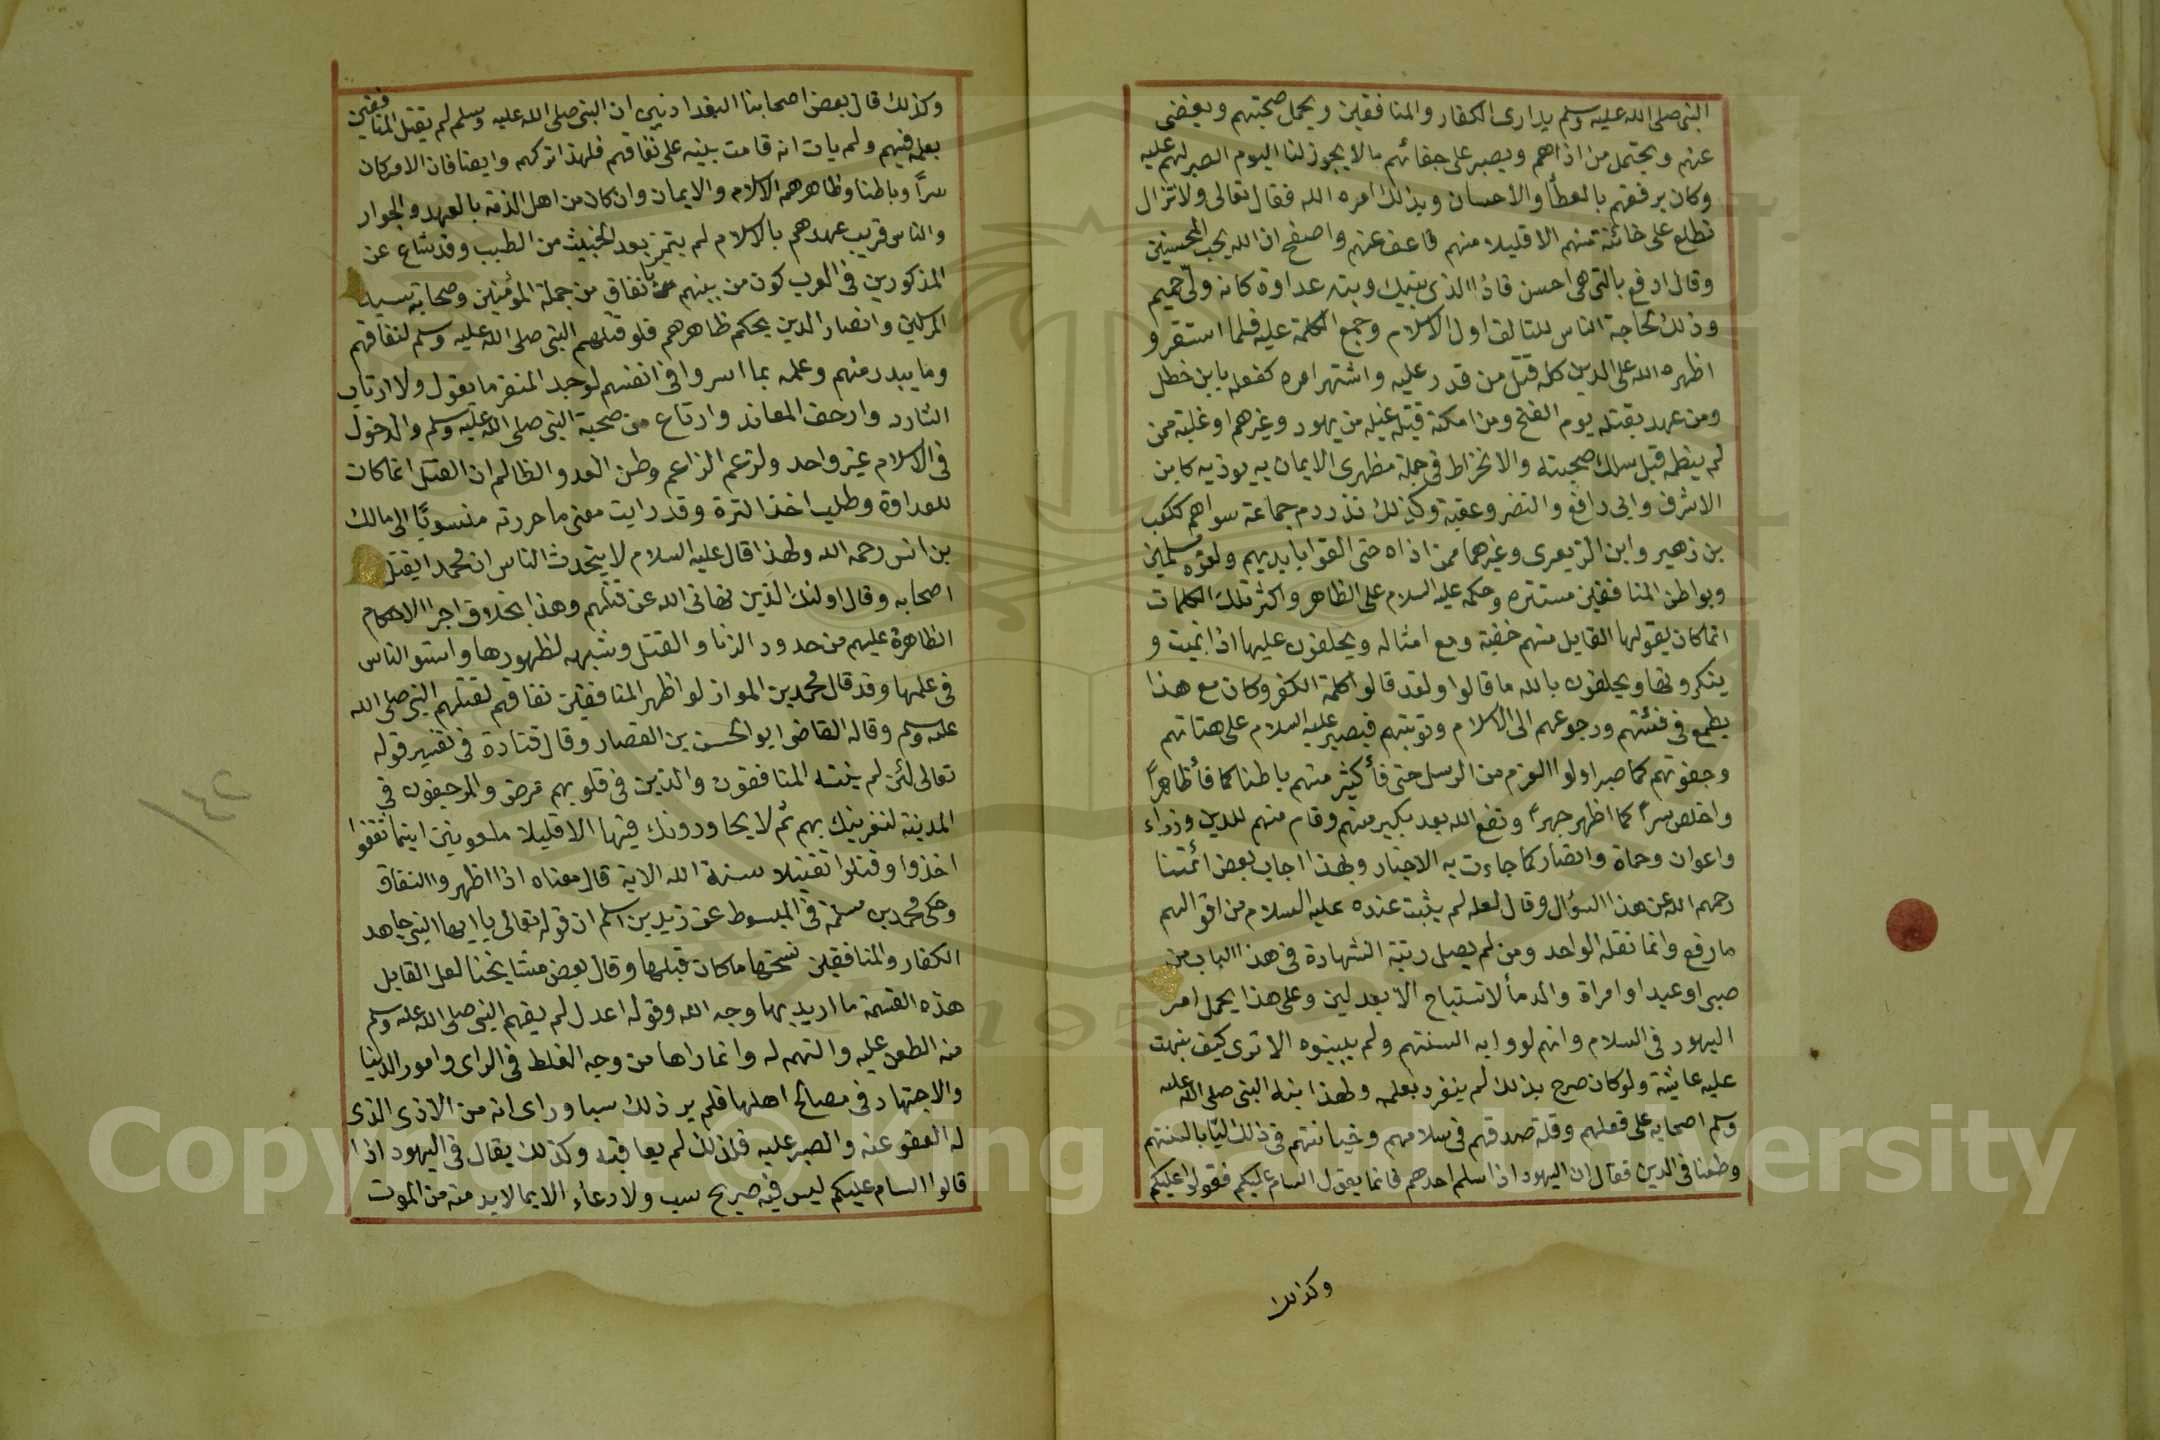 النبى صلى الله عليه وسلم يدارى الكفار والمنافقين ويحمل صحبتهم ويغضى
عنهم ويحتمل من اذاهم ويصبر على جفائهم ما لا يجوز لنا اليوم الصبر لهم عليه
وكان يرفقهم بالعطأ والاحسان وبذلك امره الله فقال تعالى ولا تزال
تطلع على خائنة منهم الا قليلا منهم فاعف عنهم واصفح ان الله يحب المحسنين
وقال ادفع بالتى هى احسن فاذا الذى بينك وبينه عداوة كانه ولى حميم
وذلك لحاجة الناس للتالف اول الاسلام وجمع الكلمة عليه فلما استقر و
اظهره الله على الدين كله قتل من قدر عليه واشتهر امره كفعله بابن خطل
ومن عهد بقتله يوم الفتح ومن امكنه قتله غيله من يهود وغيرهم او غلبة ممن
لم ينظمه قبل سلك صحبته والانخراط فى جملة مظهرى الايمان به يوذيه كابن
الاشرف وابى رافع والنضر وعقبة وكذلك نذر دم جماعة سواهم ككعب
بن زهير وابن الزبعرى وغيرهما ممن اذاه حتى القوا بايديهم ولقوه مسلمين
وبواطن المنافقين مستتره وحكمه عليه السلام على الظاهر واكثر تلك الكلمات
انما كان يقولها القايل منهم خفية ومع امثاله ويحلفون عليها اذا نميت و
ينكرونها ويحلفون بالله ما قالوا ولقد قالوا كلمة الكفر وكان مع هذا
يطمع فى فئتهم ورجوعهم الى الاسلام وتوبتهم فيصبر عليه السلام على هناتهم
وجفوتهم كما صبر اولوا العزم من الرسل حتى فأ كثير منهم باطنا كما فأ ظاهرا
واخلص سرا كما اظهر جهرا ونفع الله بعد بكثير منهم وقام منهم للدين وزراء
واعوان وحماة وانصار كما جاءت به الاخبار وبهذا اجاب بعض ائمتنا
رحمهم الله عن هذا السؤال وقال لعله لم يثبت عنده عليه السلام من اقوالهم
ما رفع وانما نقله الواحد ومن لم يصل رتبة الشهادة فى هذا الباب من
صبى او عبد او امراة والدمأ لا تستباح الا بعدلين وعلى هذا يحمل امر
اليهود فى السلام وانهم لووا به السنتهم ولم يبينوه الا ترى كيف نبهت
عليه عايشة ولو كان صرح بذلك لم ينفرد بعلمه ولهذا نبه النبى صلى الله عليه
وسلم اصحابه على فعلهم وقلة صدقهم فى سلامهم وخيانتهم فى ذلك ليا بالسنتهم
وطعنا فى الدين فقال ان اليهود اذا سلم احدهم فانما يقول السام عليكم فقولوا عليكم
وكذلك
وكذلك قال بعض اصحابنا البغدادنيين ان النبى صلى الله عليه وسلم لم يقتل المنافقين
بعلمه فيهم ولم يات انه قامت بينه على نفاقهم فلهذا تركهم وايضا فان الامر كان
سرا وباطنا وظاهرهم الاسلام والايمان وان كان من اهل الذمة بالعهد والجوار
والناس قريب عهدهم بالاسلام لم يتميز بعد الخبيث من الطيب وقد شاع عن
المذكورين فى العرب كون من بينهم بالنفاق من جملة المؤمنين وصحابة سيد
المرسلين وانصار الدين بحكم ظاهرهم فلو قتلهم النبى صلى الله عليه وسلم لنفاقهم
وما يبدر منهم وعلمه بما اسروا فى انفسهم لوجد المنفر ما يقول ولارتاب
الشارد وارجف المعاند وارتاع من صحبة النبى صلى الله عليه وسلم والدخول
فى الاسلام غير واحد ولزعم الزاعم وظن العدو الظالم ان القتل انما كان
للعداوة وطلب اخذ الترة وقد رايت معنى ما حررته منسوبا الى مالك
بن انس رحمه الله ولهذا قال عليه السلام لا يتحدث الناس ان محمدا يقتل
اصحابه وقال اولئك الذين نهانى الله عن قتلهم وهذا بخلاف اجرا الاحكام
الظاهرة عليهم من حدود الزنا والقتل وشبهه لظهورها واستو الناس
فى علمها وقد قال محمد بن المواز لو اظهر المنافقين نفاقهم لقتلهم النبى صلى الله
عليه وسلم وقاله القاضى ابو الحسن بن القصار وقال قتادة فى تفسير قوله
تعالى لئن لم ينته المنافقون والذين فى قلوبهم مرض والمرجفون فى
المدينة لنغرينك بهم ثم لا يجاورونك فيها الا قليلا ملعونين اينما ثقفوا
اخذوا وقتلوا تقتيلا سنة الله الاية قال معناه اذا اظهروا النفاق
وحكى محمد بن مسلمة فى المبسوط عن زيد بن اسلم ان قوله تعالى يا ايها النبى جاهد
الكفار والمنافقين نسختها ما كان قبلها وقال بعض مشايخنا لعل القايل
هذه القسمة ما اريد بها وجه الله وقوله اعدل لم يفهم النبى صلى الله عليه وسلم
منه الطعن عليه والتهمه له وانما راها من وجه الغلط فى الراى وامور الدنيا
والاجتهاد فى مصالح اهلها فلم ير ذلك سبا وراى انه من الاذى الذى
له العفو عنه والصبر عليه فلذلك لم يعاقبه وكذلك يقال فى اليهود اذا
قالوا السام عليكم ليس فيه صريح سب ولا دعاء الا بما لا بد منه من الموت
١٤٢
Copyright © King Saud University
1957